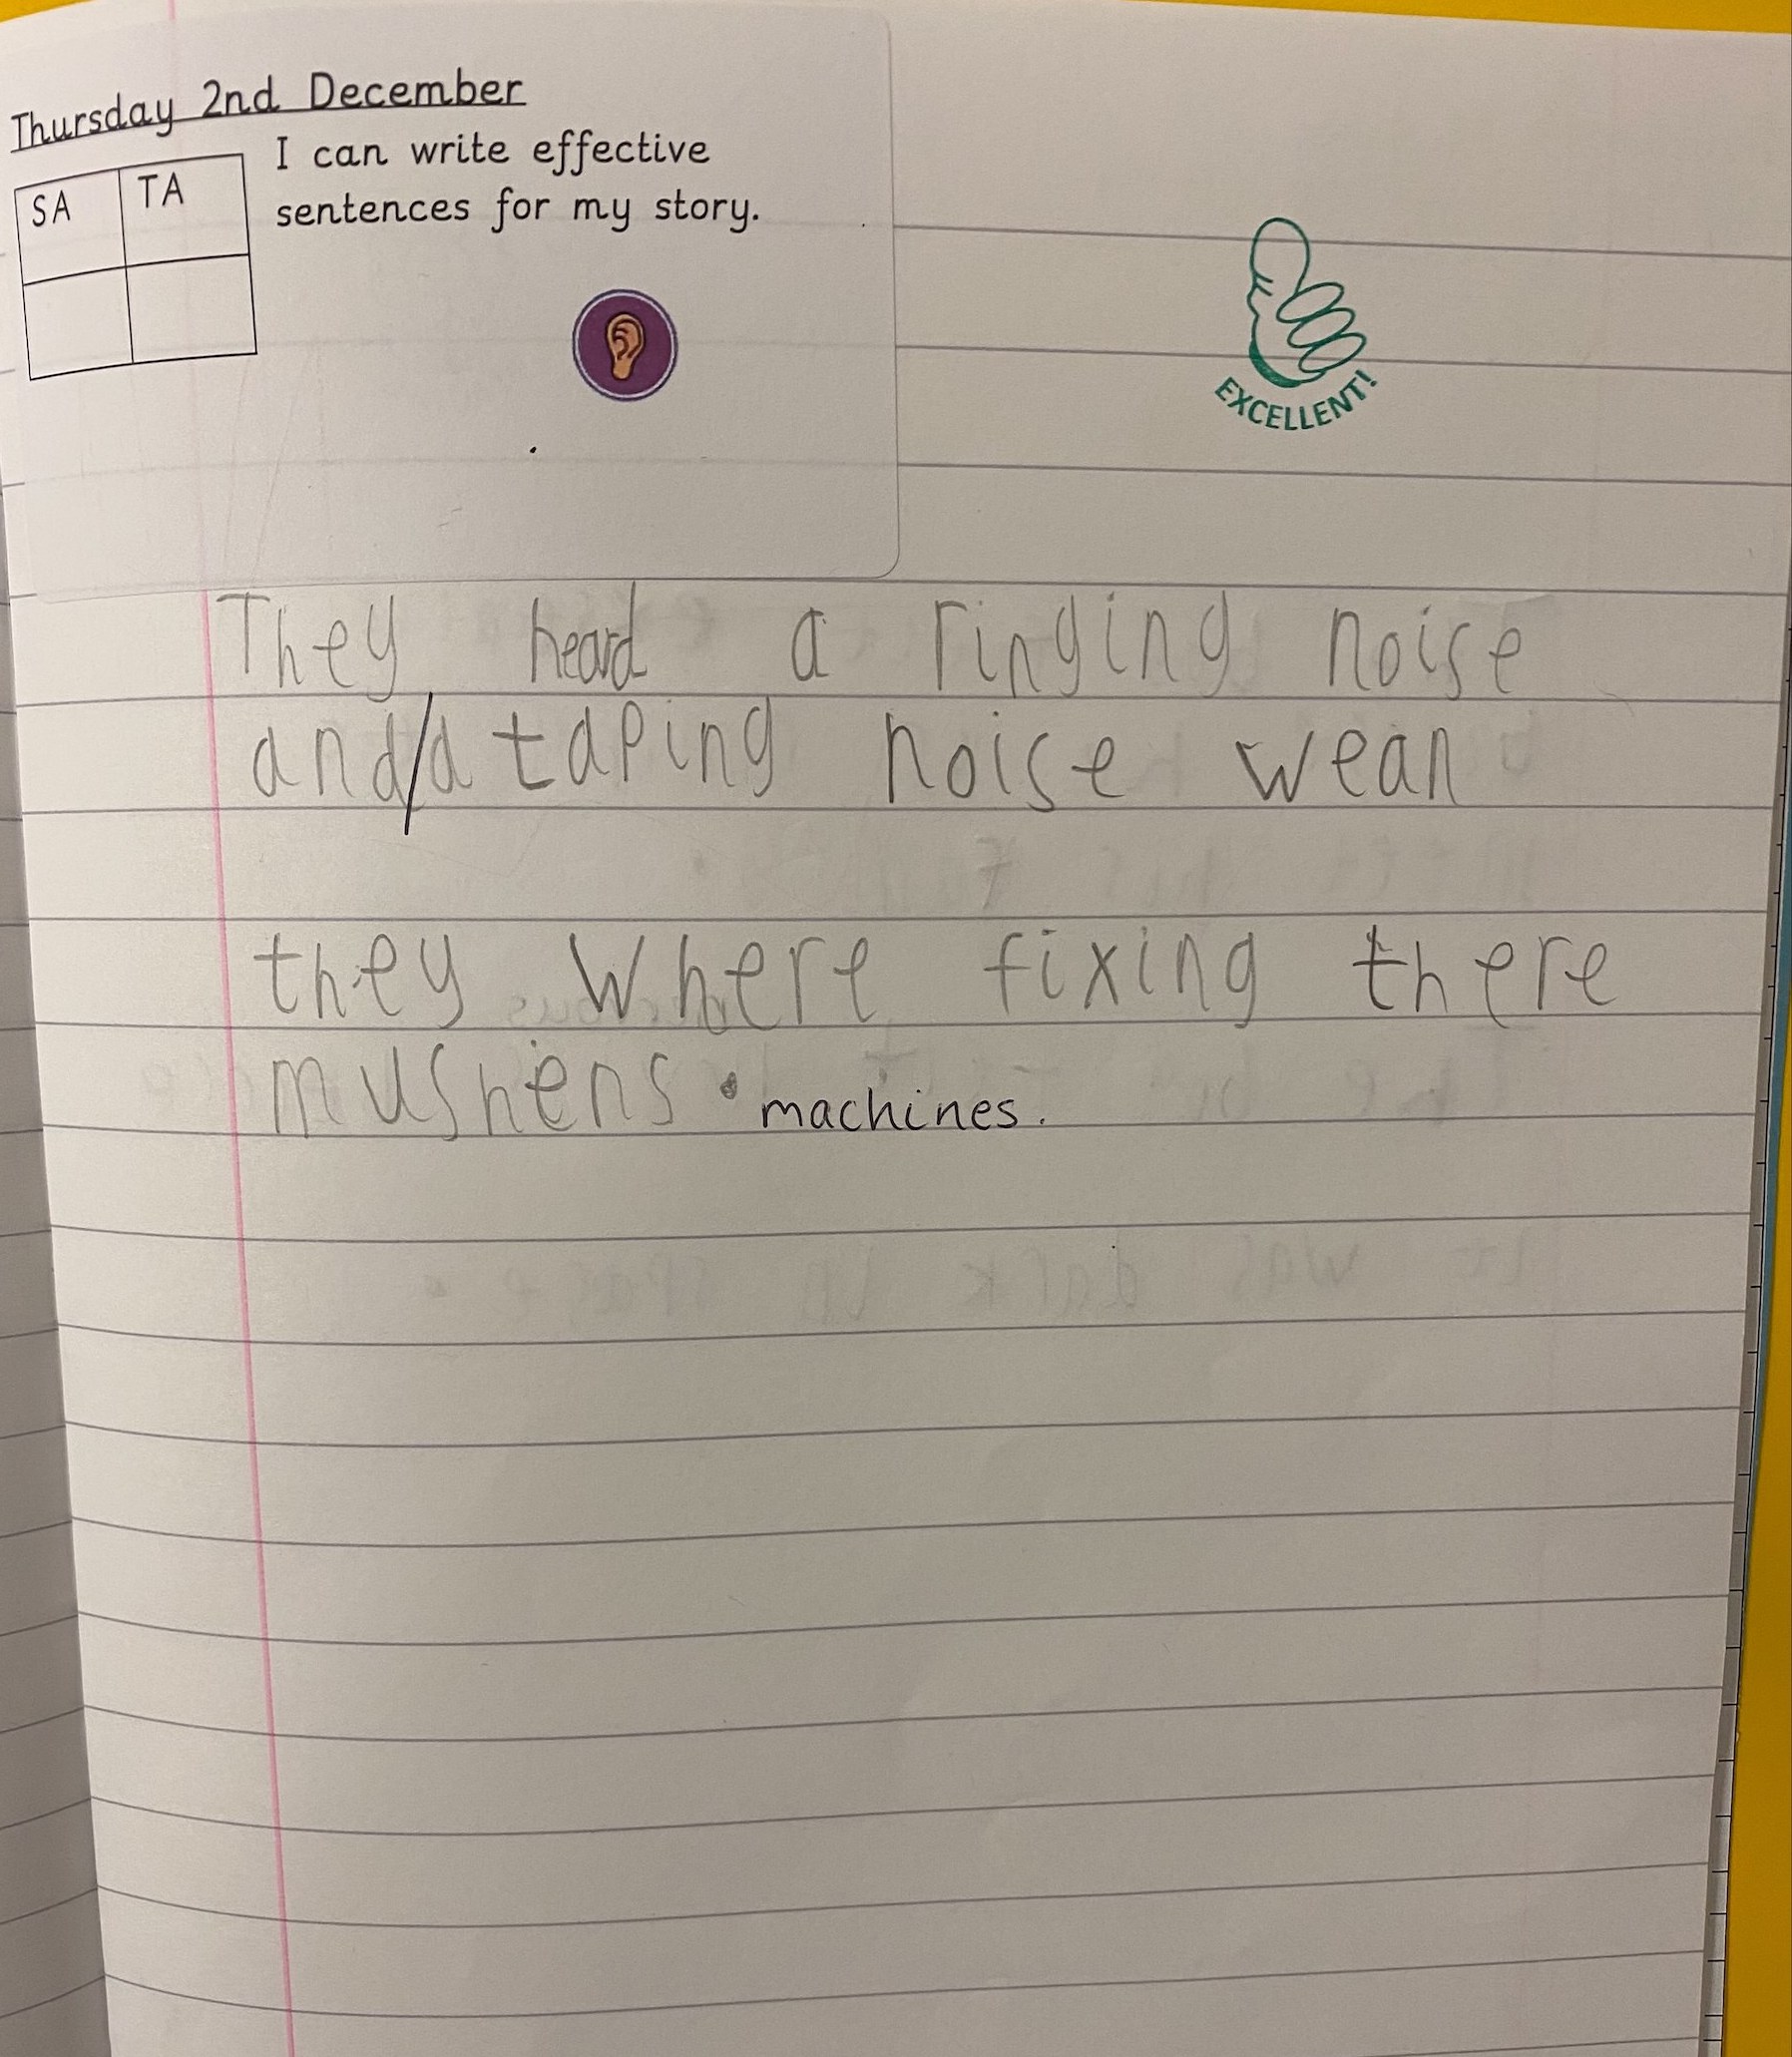 Thursday 2nd December
SA TA
I can write effective
sentences for my story.
EXCELLENT!
They heard a ringing noise
and/a taping noise wean
they where fixing there
mushens. machines.